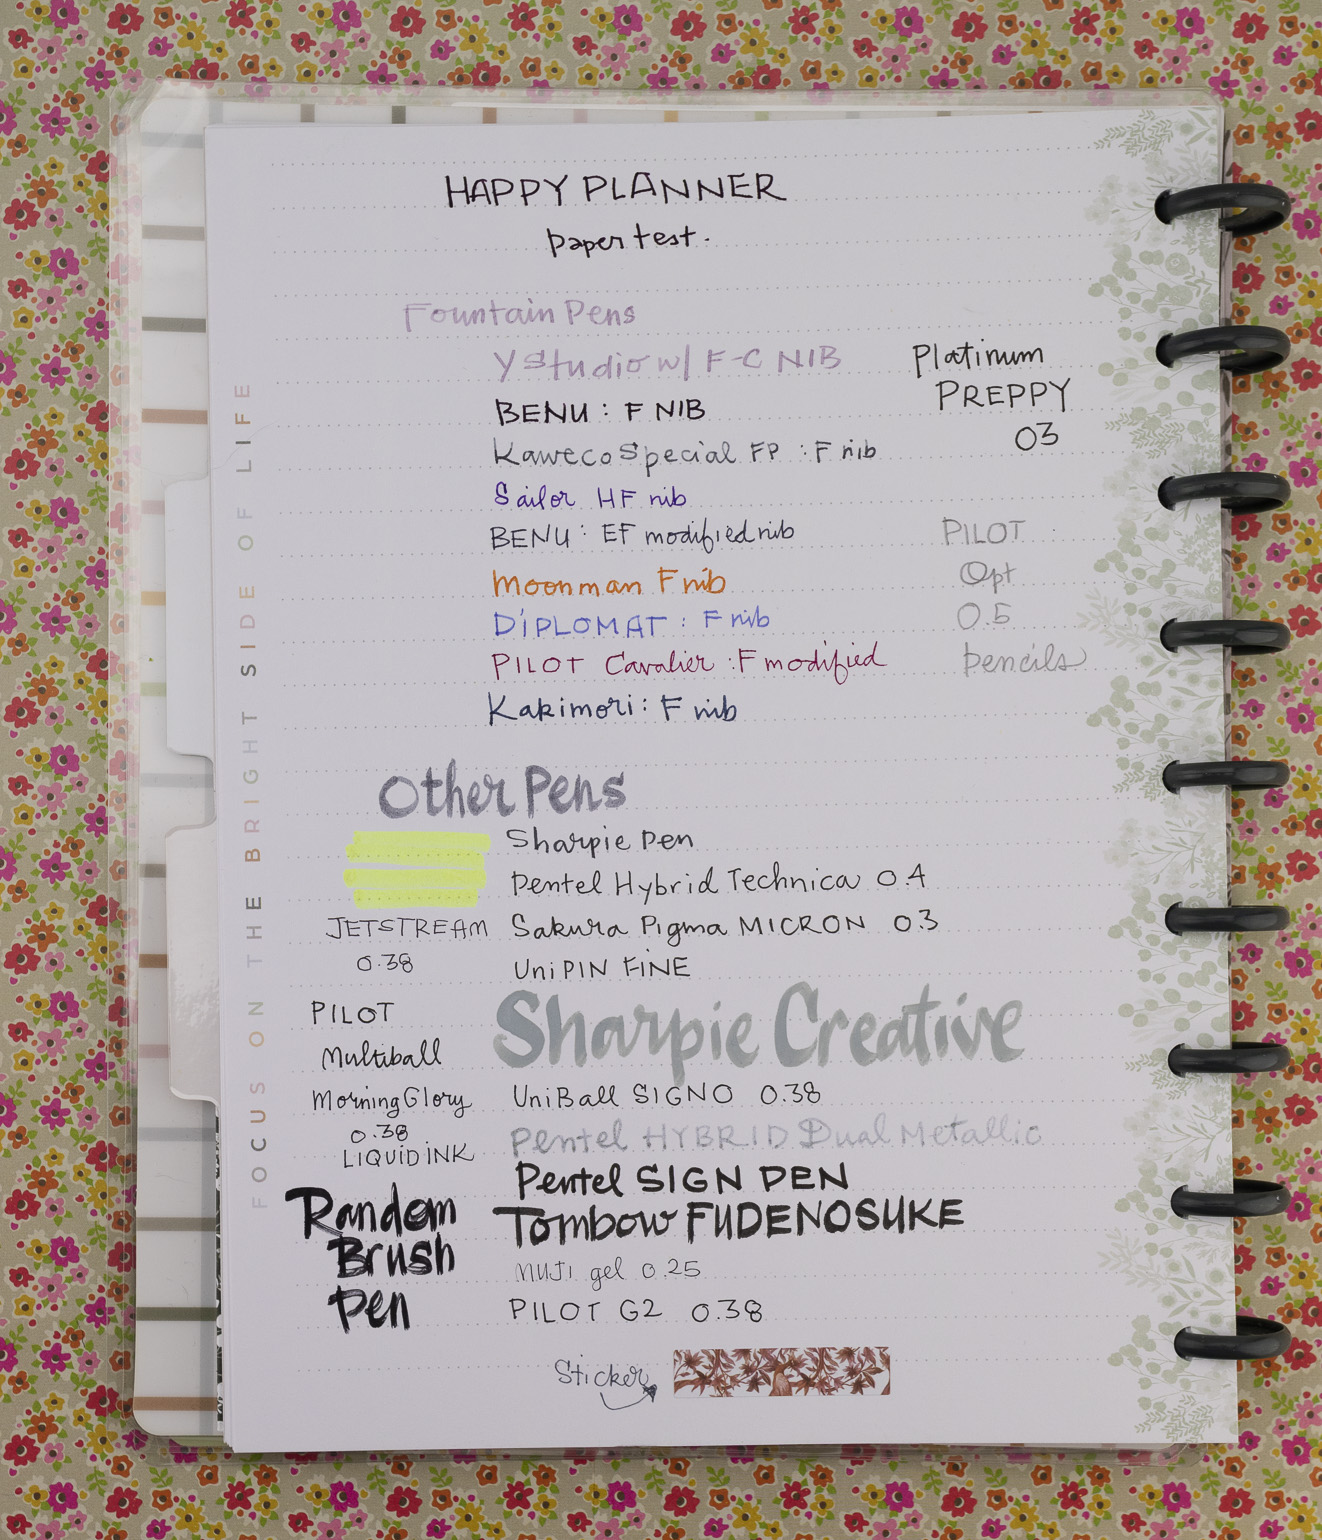 HAPPY PLANNER
paper test.
Fountain Pens
Y Studio w/ F-C NIB
BENU : F NIB
Kaweco Special FP : F nib
Sailor HF nib
BENU : EF modified nib
Moonman F nib
DiPLOMAT : F nib
PILOT Cavalier : F modified
Kakimori : F nib
Platinum
PREPPY
03
PILOT
Opt
0.5
pencils
Other Pens
Sharpie Pen
Pentel Hybrid Technica 0.4
Sakura Pigma MICRON 0.3
Uni PIN FINE
Sharpie Creative
UniBall SIGNO 0.38
Pentel HYBRID Dual Metallic
Pentel SIGN PEN
Tombow FUDENOSUKE
MUJI gel 0.25
PILOT G2 0.38
JETSTREAM
0.38
PILOT
Multiball
Morning Glory
0.38
LIQUID INK
Random
Brush
Pen
Sticker
FOCUS ON THE BRIGHT SIDE OF LIFE